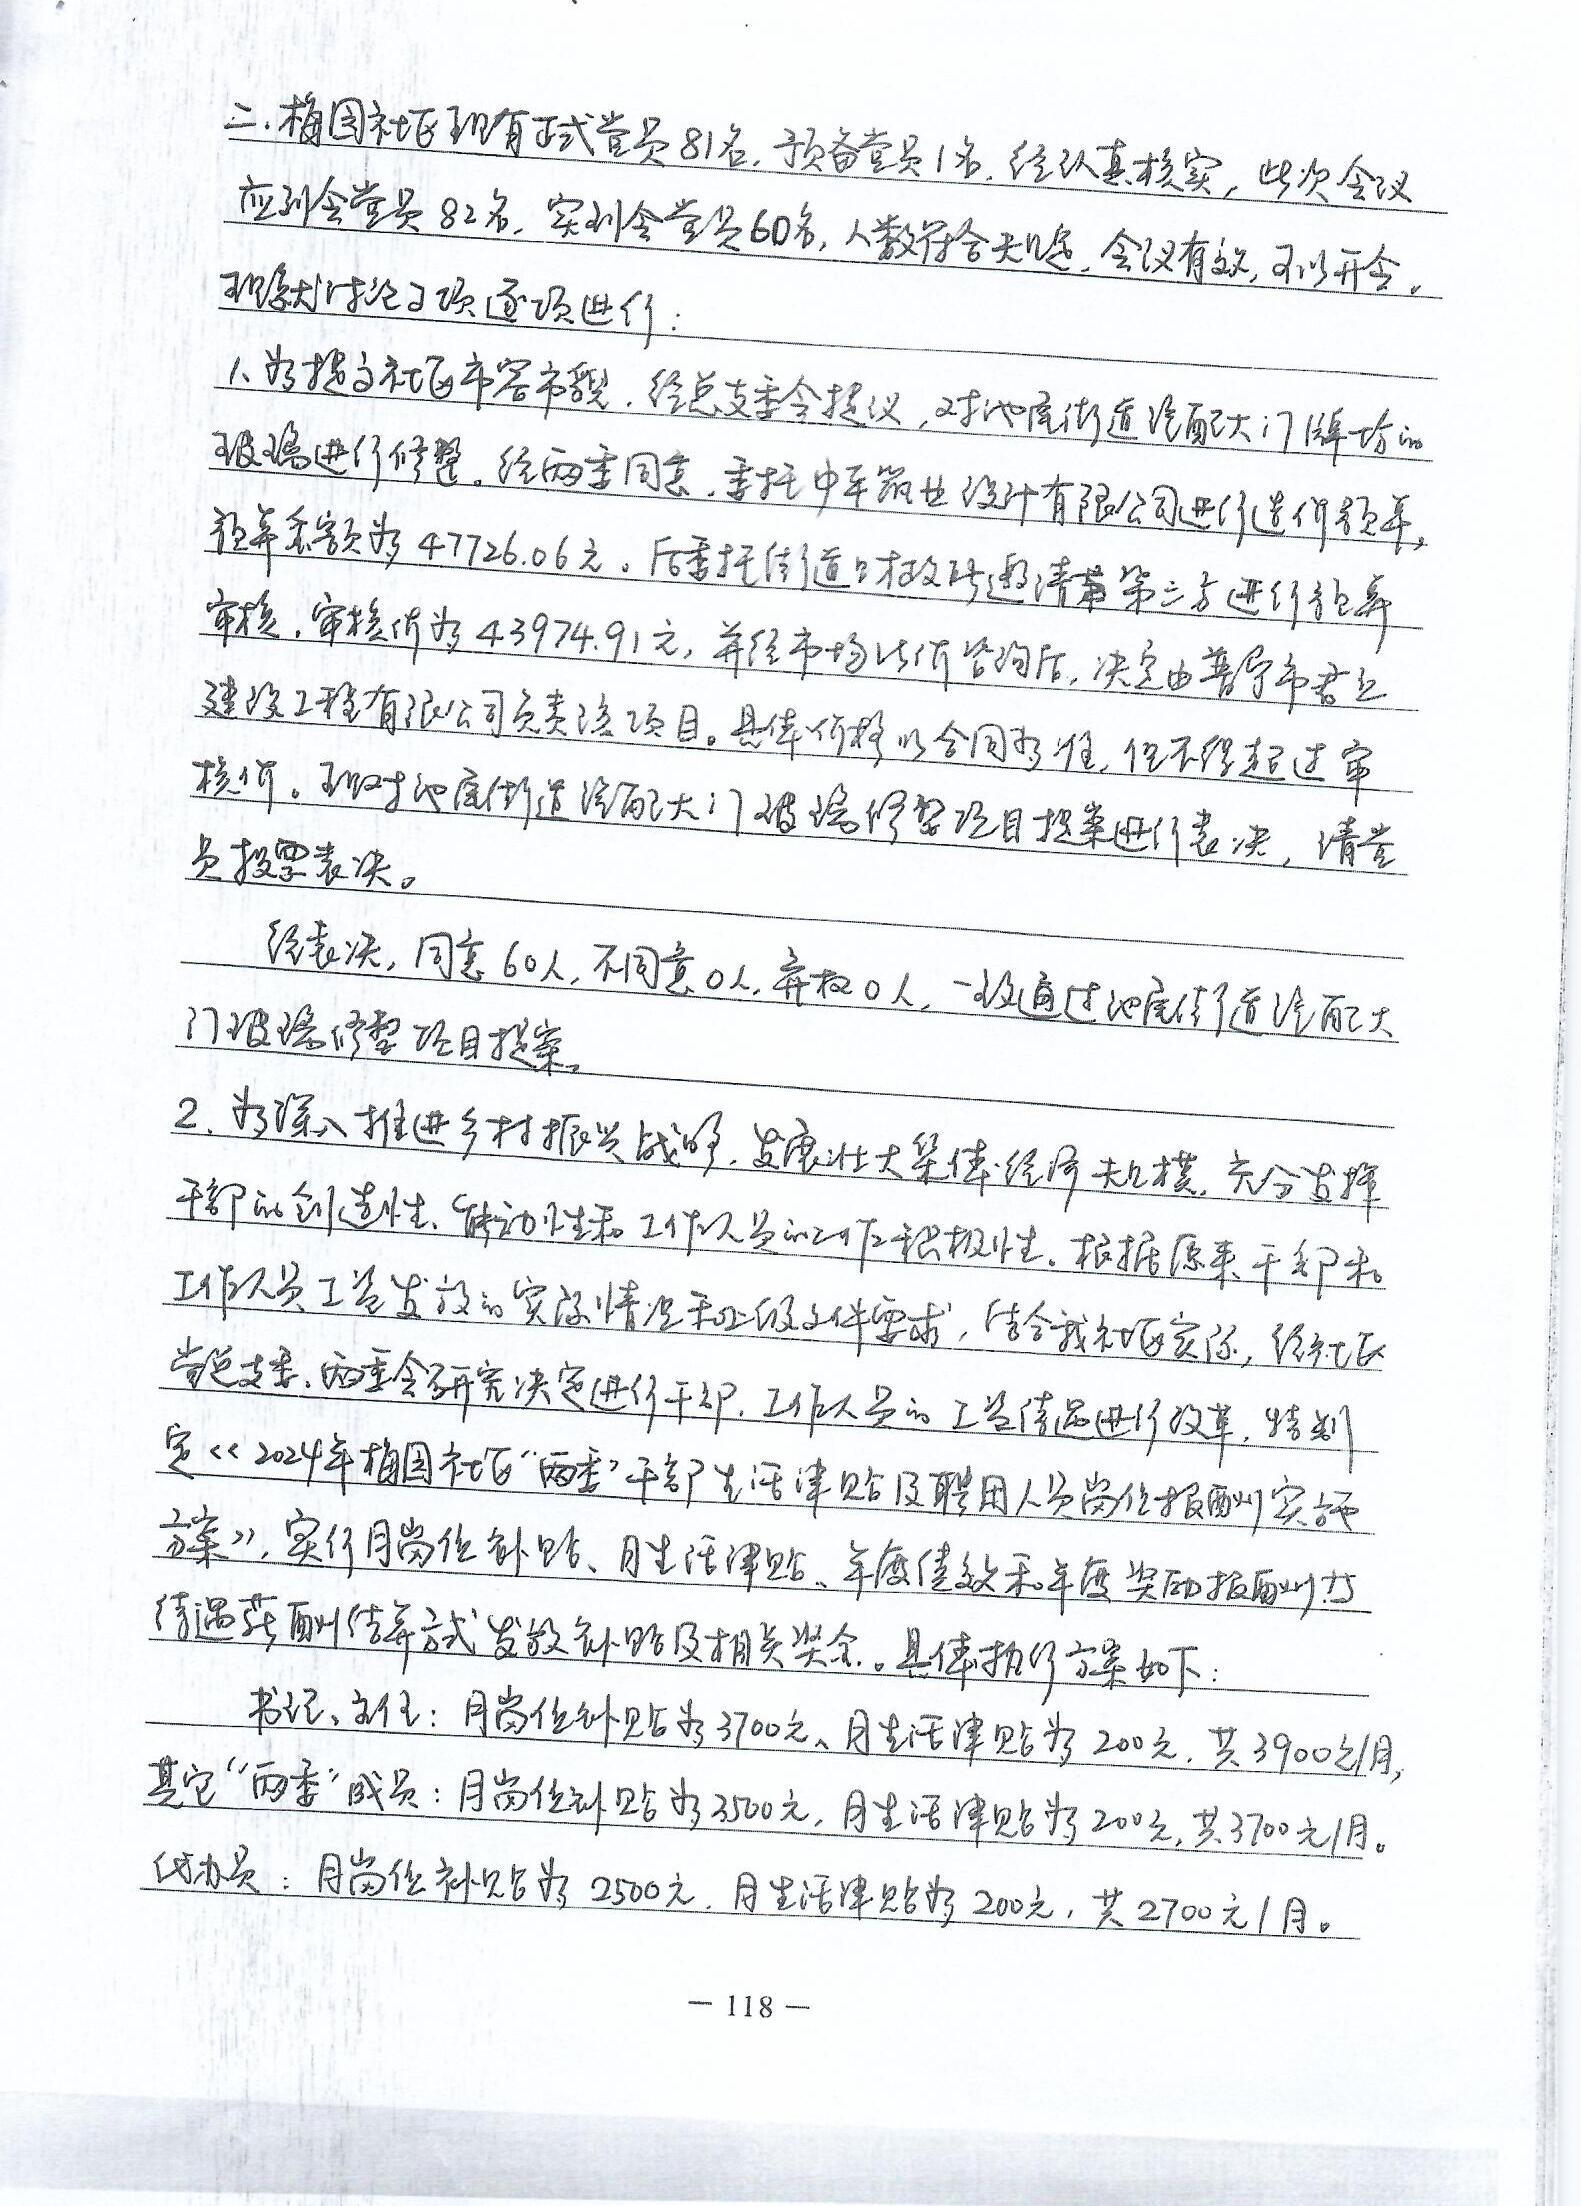 二.梅园社区现有正式党员81名,预备党员1名,经认真核实,此次会议
应到会党员82名,实到会党员60名,人数符合规定,会议有效,可以开会。
现就讨论事项逐项进行:
1、为提高社区市容市貌,经总支委会提议,对池尾街道汽配大门牌坊的
玻璃进行修整。经两委同意,委托中军筑业设计有限公司进行造价预算,
预算金额为47726.06元。后委托街道财政所邀请第三方进行预算
审核,审核价为43974.91元,并经市场比价咨询后,决定由普宁市君正
建设工程有限公司负责该项目。具体价格以合同为准,但不得超过审
核价。现对池尾街道汽配大门玻璃修整项目提案进行表决,请党
员投票表决。
经表决,同意60人,不同意0人,弃权0人,一致通过池尾街道汽配大
门玻璃修整项目提案。
2.为深入推进乡村振兴战略,发展壮大集体经济规模,充分发挥
干部的创造性、能动性和工作人员的工作积极性。根据原来干部和
工作人员工资发放的实际情况和上级文件要求,结合我社区实际,经社区
党总支委、两委会研究决定进行干部、工作人员的工资待遇进行改革,特制
定《2024年梅园社区“两委”干部生活津贴及聘用人员岗位报酬实施
方案》,实行月岗位补贴、月生活津贴、年度绩效和年度奖励报酬共
待遇薪酬结算方式发放补贴及相关奖金。具体执行方案如下:
书记、主任:月岗位补贴为3700元、月生活津贴为200元,共3900元/月,
其它“两委”成员:月岗位补贴为3500元,月生活津贴为200元,共3700元/月。
代办员:月岗位补贴为2500元,月生活津贴为200元,共2700元/月。
— 118 —